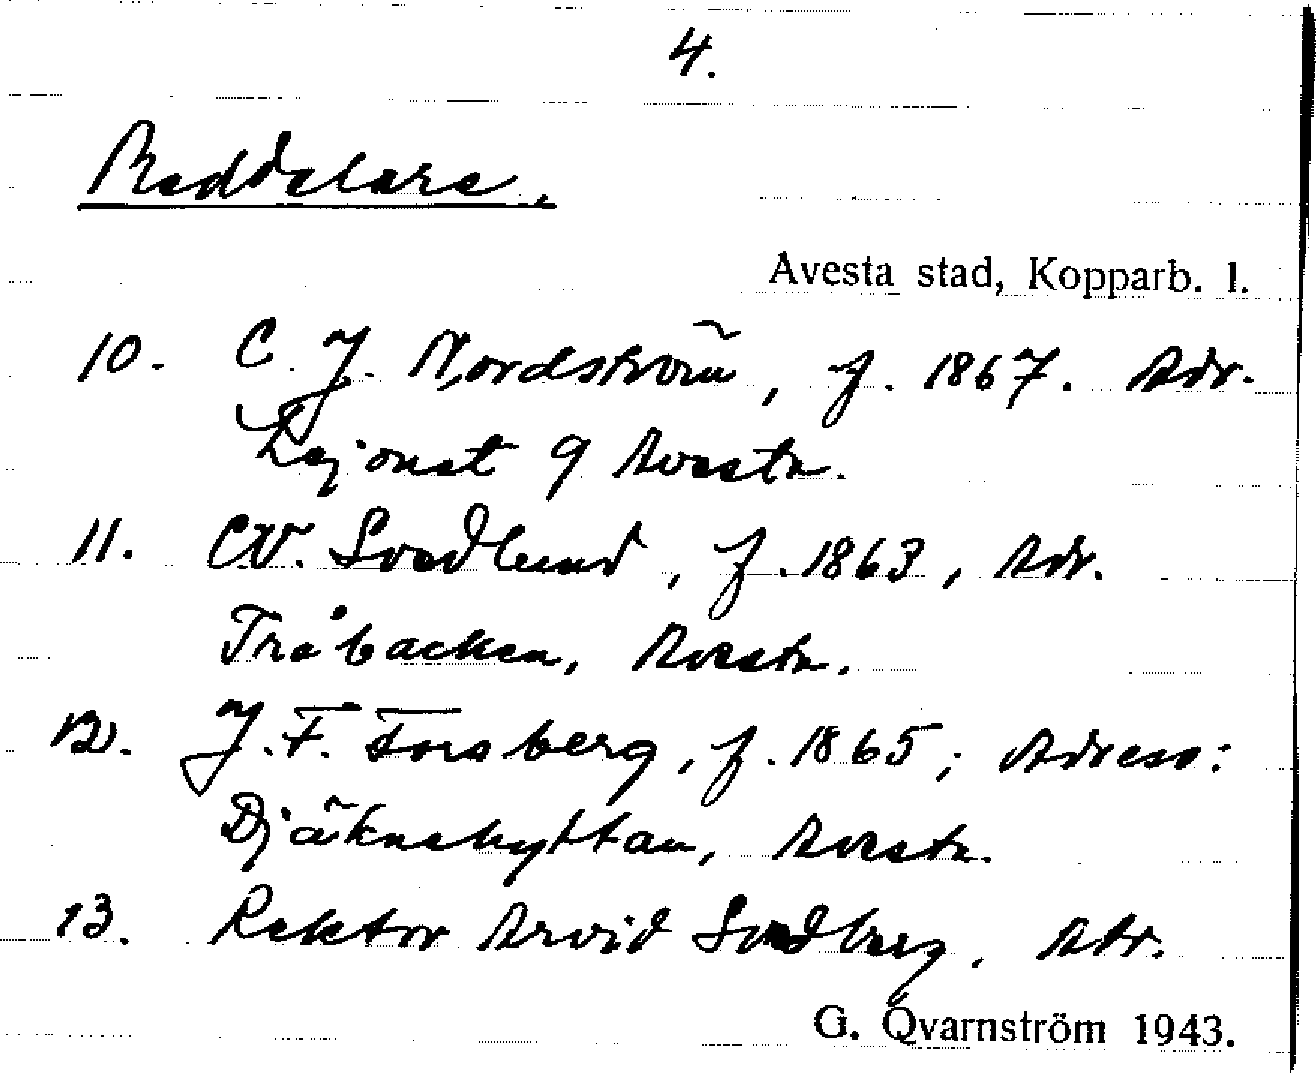 4.
Meddelare.
Avesta stad, Kopparb. l.
10. C. J. Nordström, f. 1867. Adr.
Lejonet 9 Avesta.
11. C.V. Svedlund, f. 1863, Adr.
Tråbacken, Avesta.
12. J. F. Forsberg, f. 1865; Adress:
Djäknehyttan, Avesta.
13. Rektor Arvid Svedberg. Adr.
G. Qvarnström 1943.